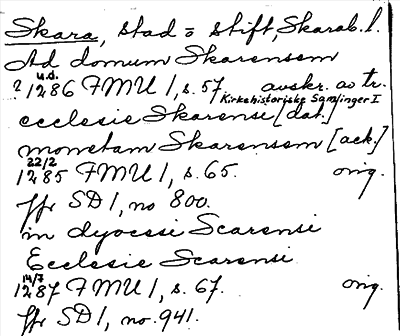 Skara, stad o stift, Skarab. l.
Ad domum Skarensem
? u.d. 1286 FMU I, s. 57 avskr. av tr.
Kirkehistoriske Samlinger I
ecclesie Skarensi [dat.]
monetam Skarensem [ack.]
22/2 1285 FMU I, s. 65. orig.
Jfr SD I, no 800.
in dyocesi Scarensi
Ecclesie Scarensi
14/7 1287 FMU I, s. 67. orig.
Jfr SD I, no 941.